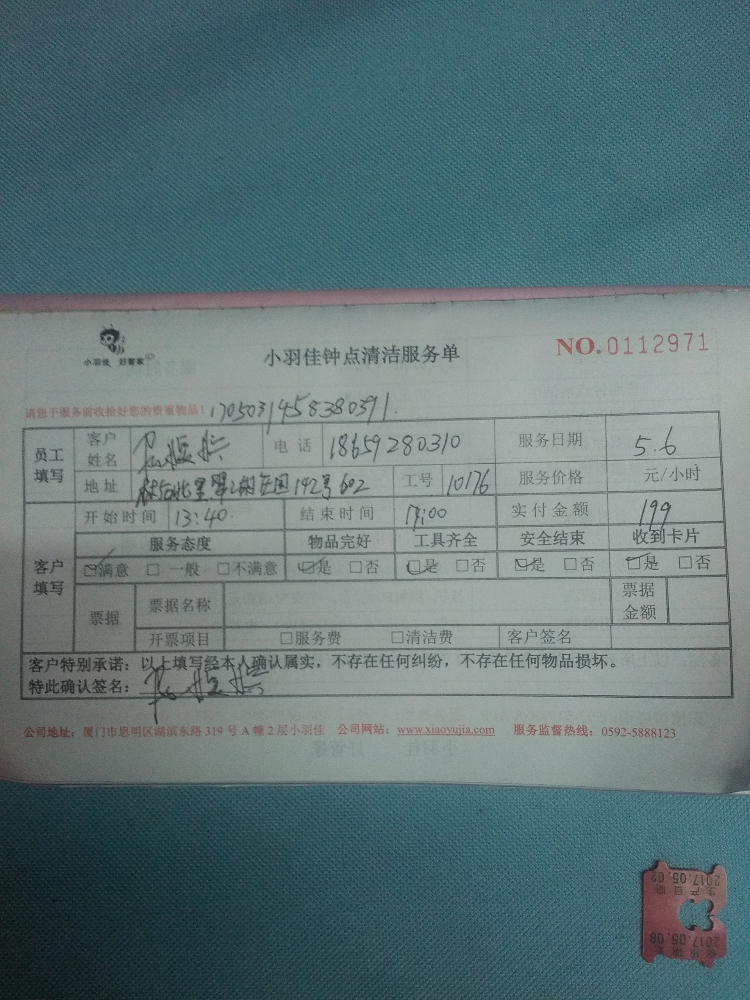 小羽佳 好管家
小羽佳钟点清洁服务单
NO.0112971
请您于服务前收拾好您的贵重物品！ 1705031458380391.
员工填写 客户姓名 电话 18659280310 服务日期 5.6
地址 192号602 工号 10176 服务价格 元/小时
客户填写 开始时间 13:40. 结束时间 17:00 实付金额 199
服务态度 物品完好 工具齐全 安全结束 收到卡片
☑满意 □一般 □不满意 ☑是 □否 ☑是 □否 ☑是 □否 ☑是 □否
票据 票据名称 票据金额
开票项目 □服务费 □清洁费 客户签名
客户特别承诺：以上填写经本人确认属实，不存在任何纠纷，不存在任何物品损坏。
特此确认签名：
公司地址：厦门市思明区湖滨东路 319 号 A 幢 2 层小羽佳 公司网站：www.xiaoyujia.com 服务监督热线：0592-5888123
生产日期
2017.05.02
2017.05.08